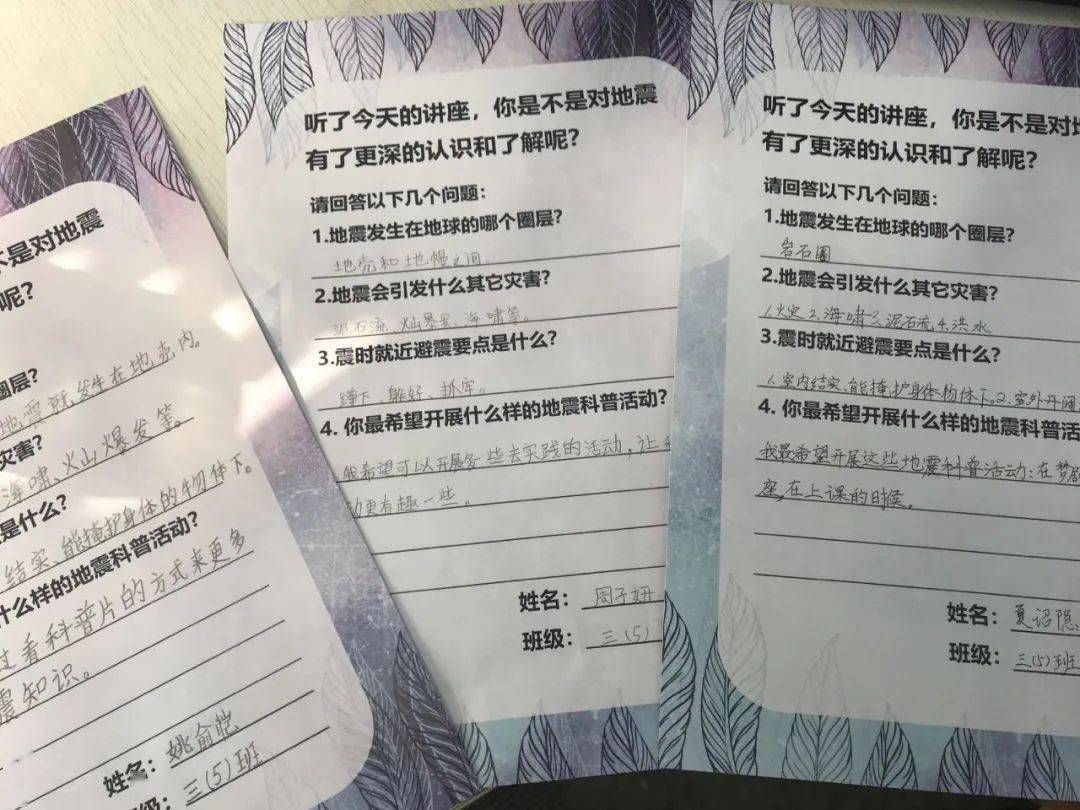 不是对地震
呢?
圈层?
地震就发生在地壳内。
灾害?
海啸、火山爆发等。
是什么?
结实、能掩护身体的物体下。
什么样的地震科普活动?
过看科普片的方式来更多
震知识。
姓名: 姚俞恺
班级: 三(5)班
听了今天的讲座，你是不是对地震
有了更深的认识和了解呢?
请回答以下几个问题:
1.地震发生在地球的哪个圈层?
地壳和地慢之间。
2.地震会引发什么其它灾害?
泥石流、火山暴发、海啸等。
3.震时就近避震要点是什么?
蹲下、躲好、抓牢。
4. 你最希望开展什么样的地震科普活动?
我希望可以开展多一些去实践的活动，让
动更有趣一些。
姓名: 周子妍
班级: 三(5)
听了今天的讲座，你是不是对地
有了更深的认识和了解呢?
请回答以下几个问题:
1.地震发生在地球的哪个圈层?
岩石圈
2.地震会引发什么其它灾害?
1.火灾2.海啸3.泥石流4.洪水
3.震时就近避震要点是什么?
1.室内结实、能掩护身体物体下。2.室外开阔
4. 你最希望开展什么样的地震科普活
我最希望开展这些地震科普活动:在梦剧
座,在上课的时候。
姓名: 夏诏隐
班级: 三(5)班